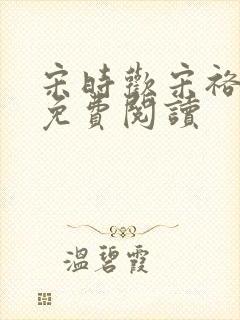 宋時歡宋裕
免費閱讀
溫碧霞